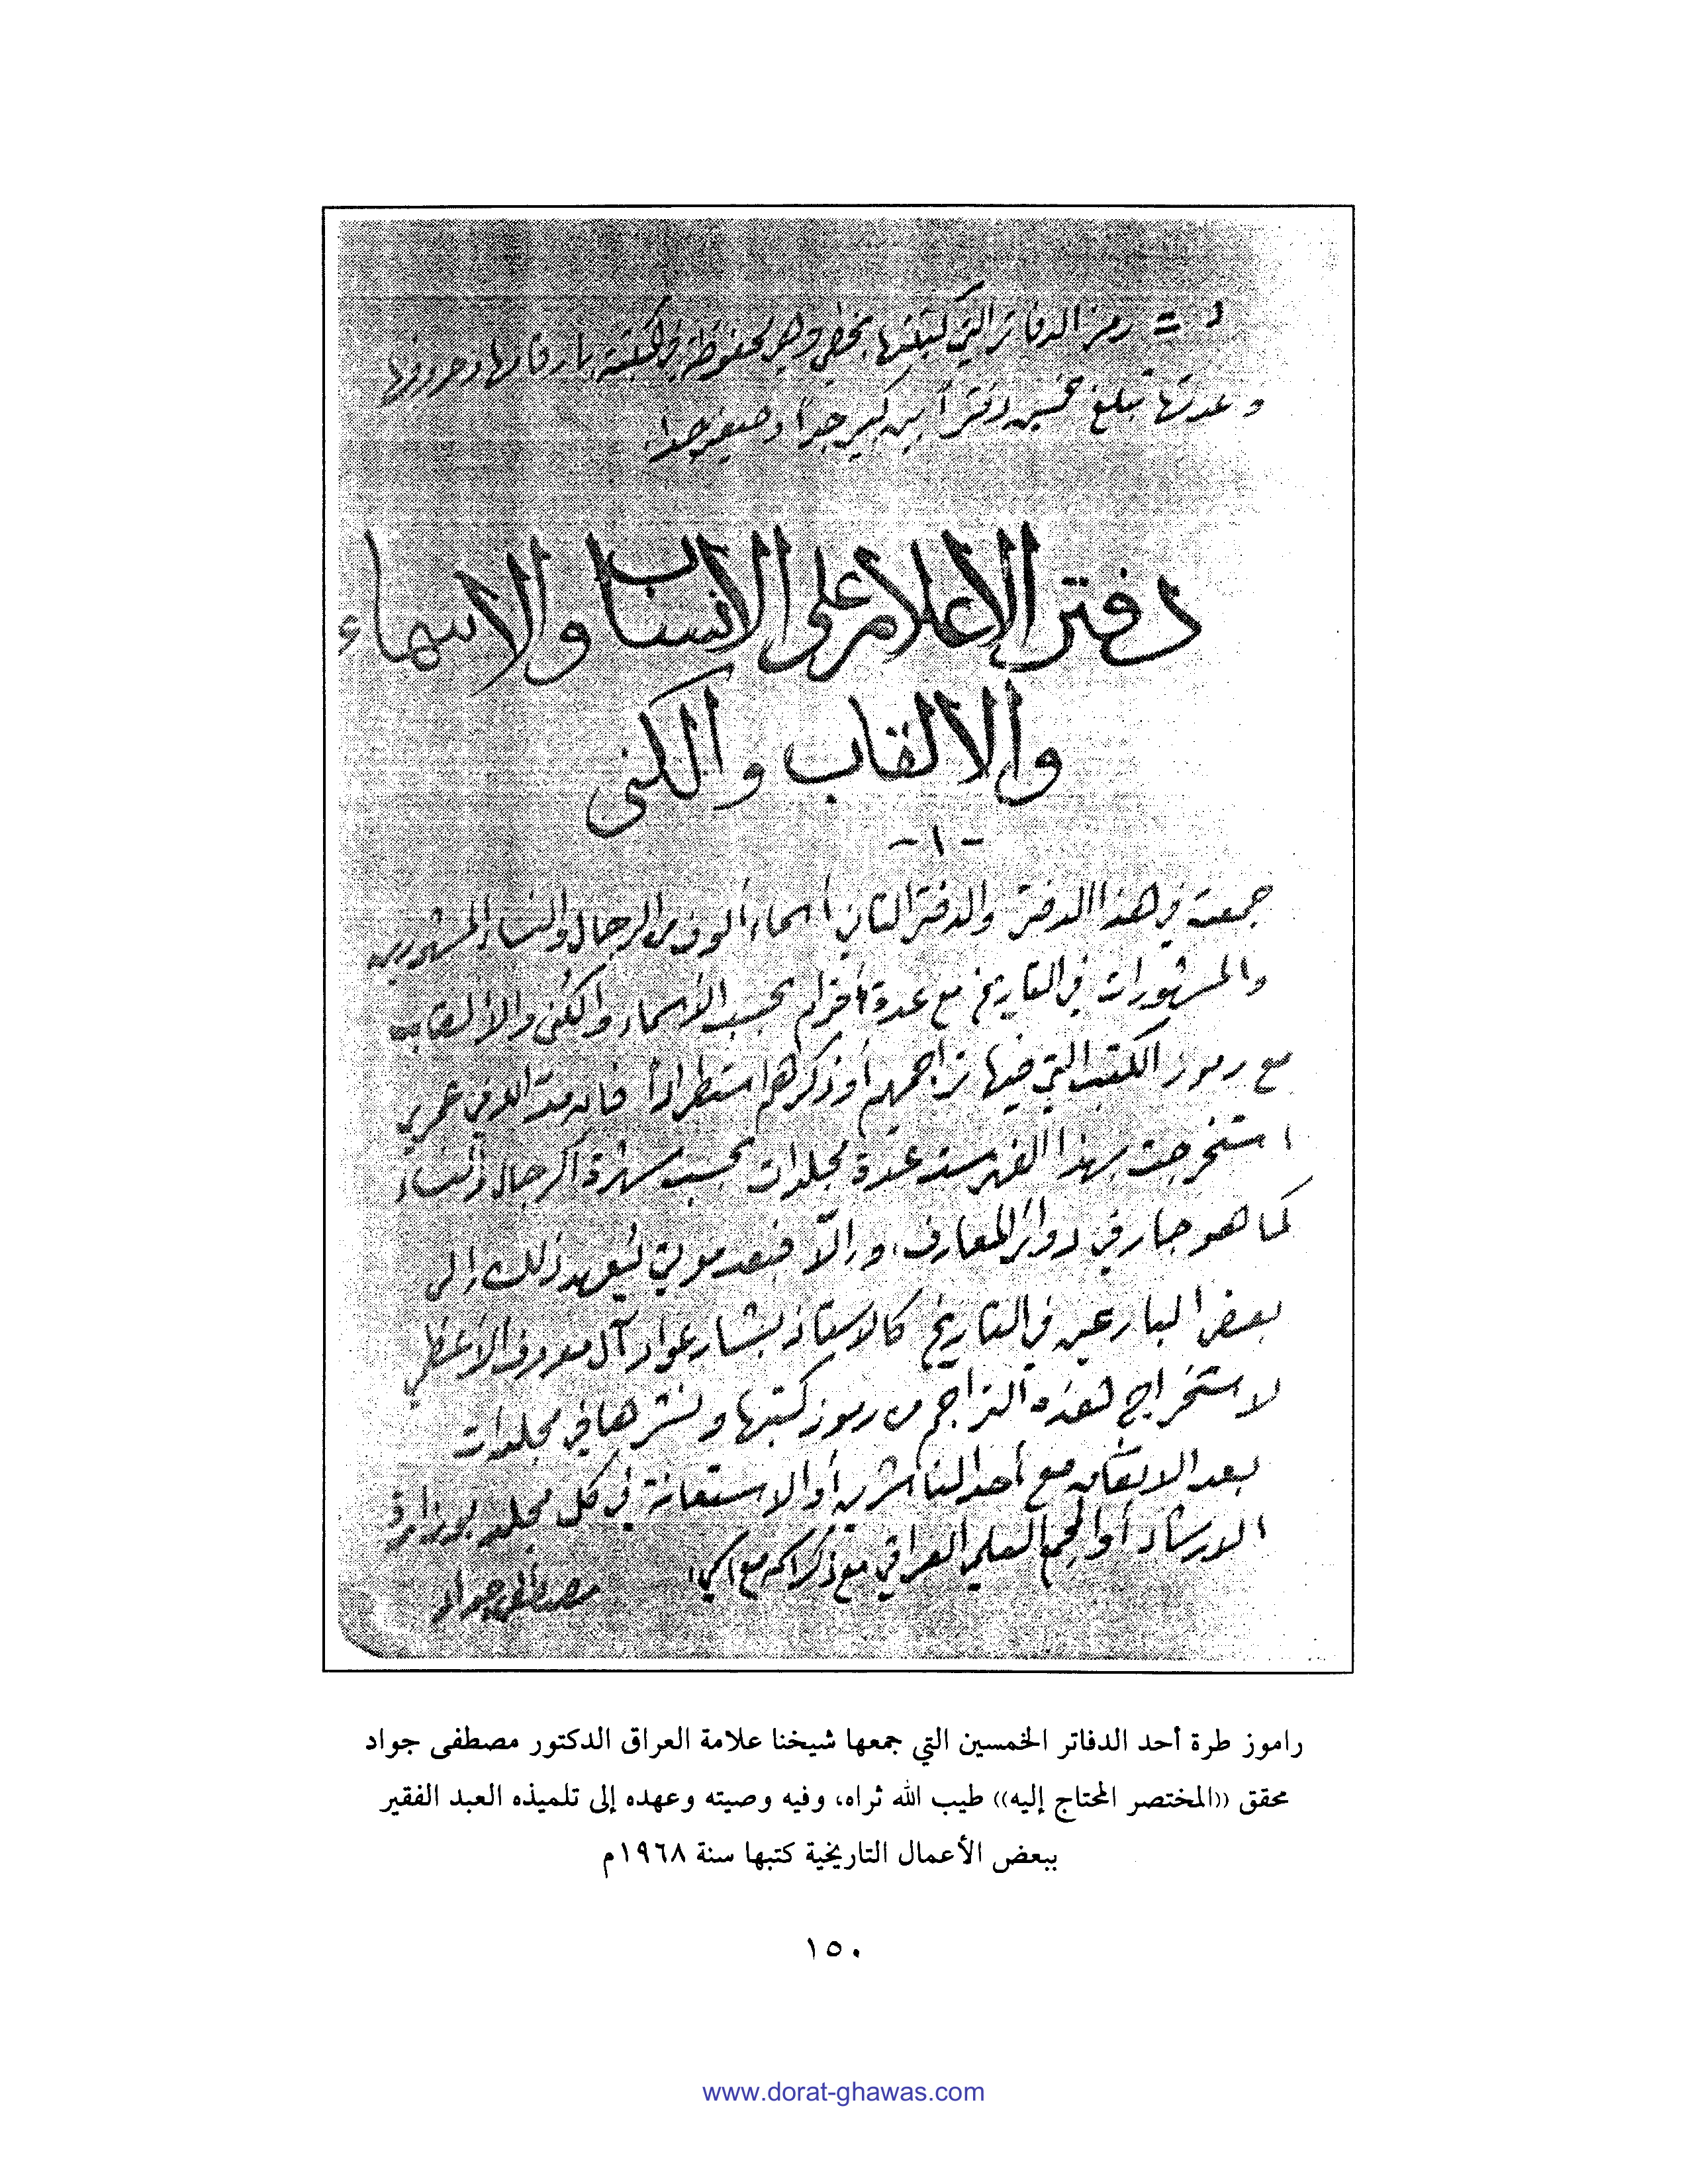 د = رمز الدفاتر التي كتبتها بخطي وهي محفوظة في المكتبة بارقامها وحروفها
وعدتها تبلغ خمسين دفتراً بين كبير جداً وصغير جداً.
دفتر الاعلام على الانساب والاسماء
والالقاب والكنى
-١-
جمعت في هذا الدفتر والدفتر الثاني أسماء ألوف من الرجال والنساء المشهورين
والمشهورات في التاريخ مع عدة أخرى بحسب الأسماء والكُنى والألقاب
مع رموز الكتب التي فيها تراجمهم أو ذكرهم استطراداً فان مدّ الله في عمري
استخرجت بهذا الفهرست عدة مجلدات بحسب شهرة الرجال والنساء
كما هو جار في دوائر المعارف، وإلّا فبعد موتي يُعهد ذلك إلى
بعض البارعين في التاريخ كالاستاذ بشار عواد آل معروف الأعظمي
لاستخراج هذه التراجم من رموز كتبها ونشرها في مجلدات
بعد الاتفاق مع أحد الناشرين أو الاستعانة في كل مجلد بوزارة
الارشاد أو المجمع العلمي العراقي مع ذكر اسمه مع اسمي.
مصطفى جواد
راموز طرة أحد الدفاتر الخمسين التي جمعها شيخنا علامة العراق الدكتور مصطفى جواد
محقق ((المختصر المحتاج إليه)) طيب الله ثراه، وفيه وصيته وعهده إلى تلميذه العبد الفقير
ببعض الأعمال التاريخية كتبها سنة ١٩٦٨م
١٥٠
www.dorat-ghawas.com